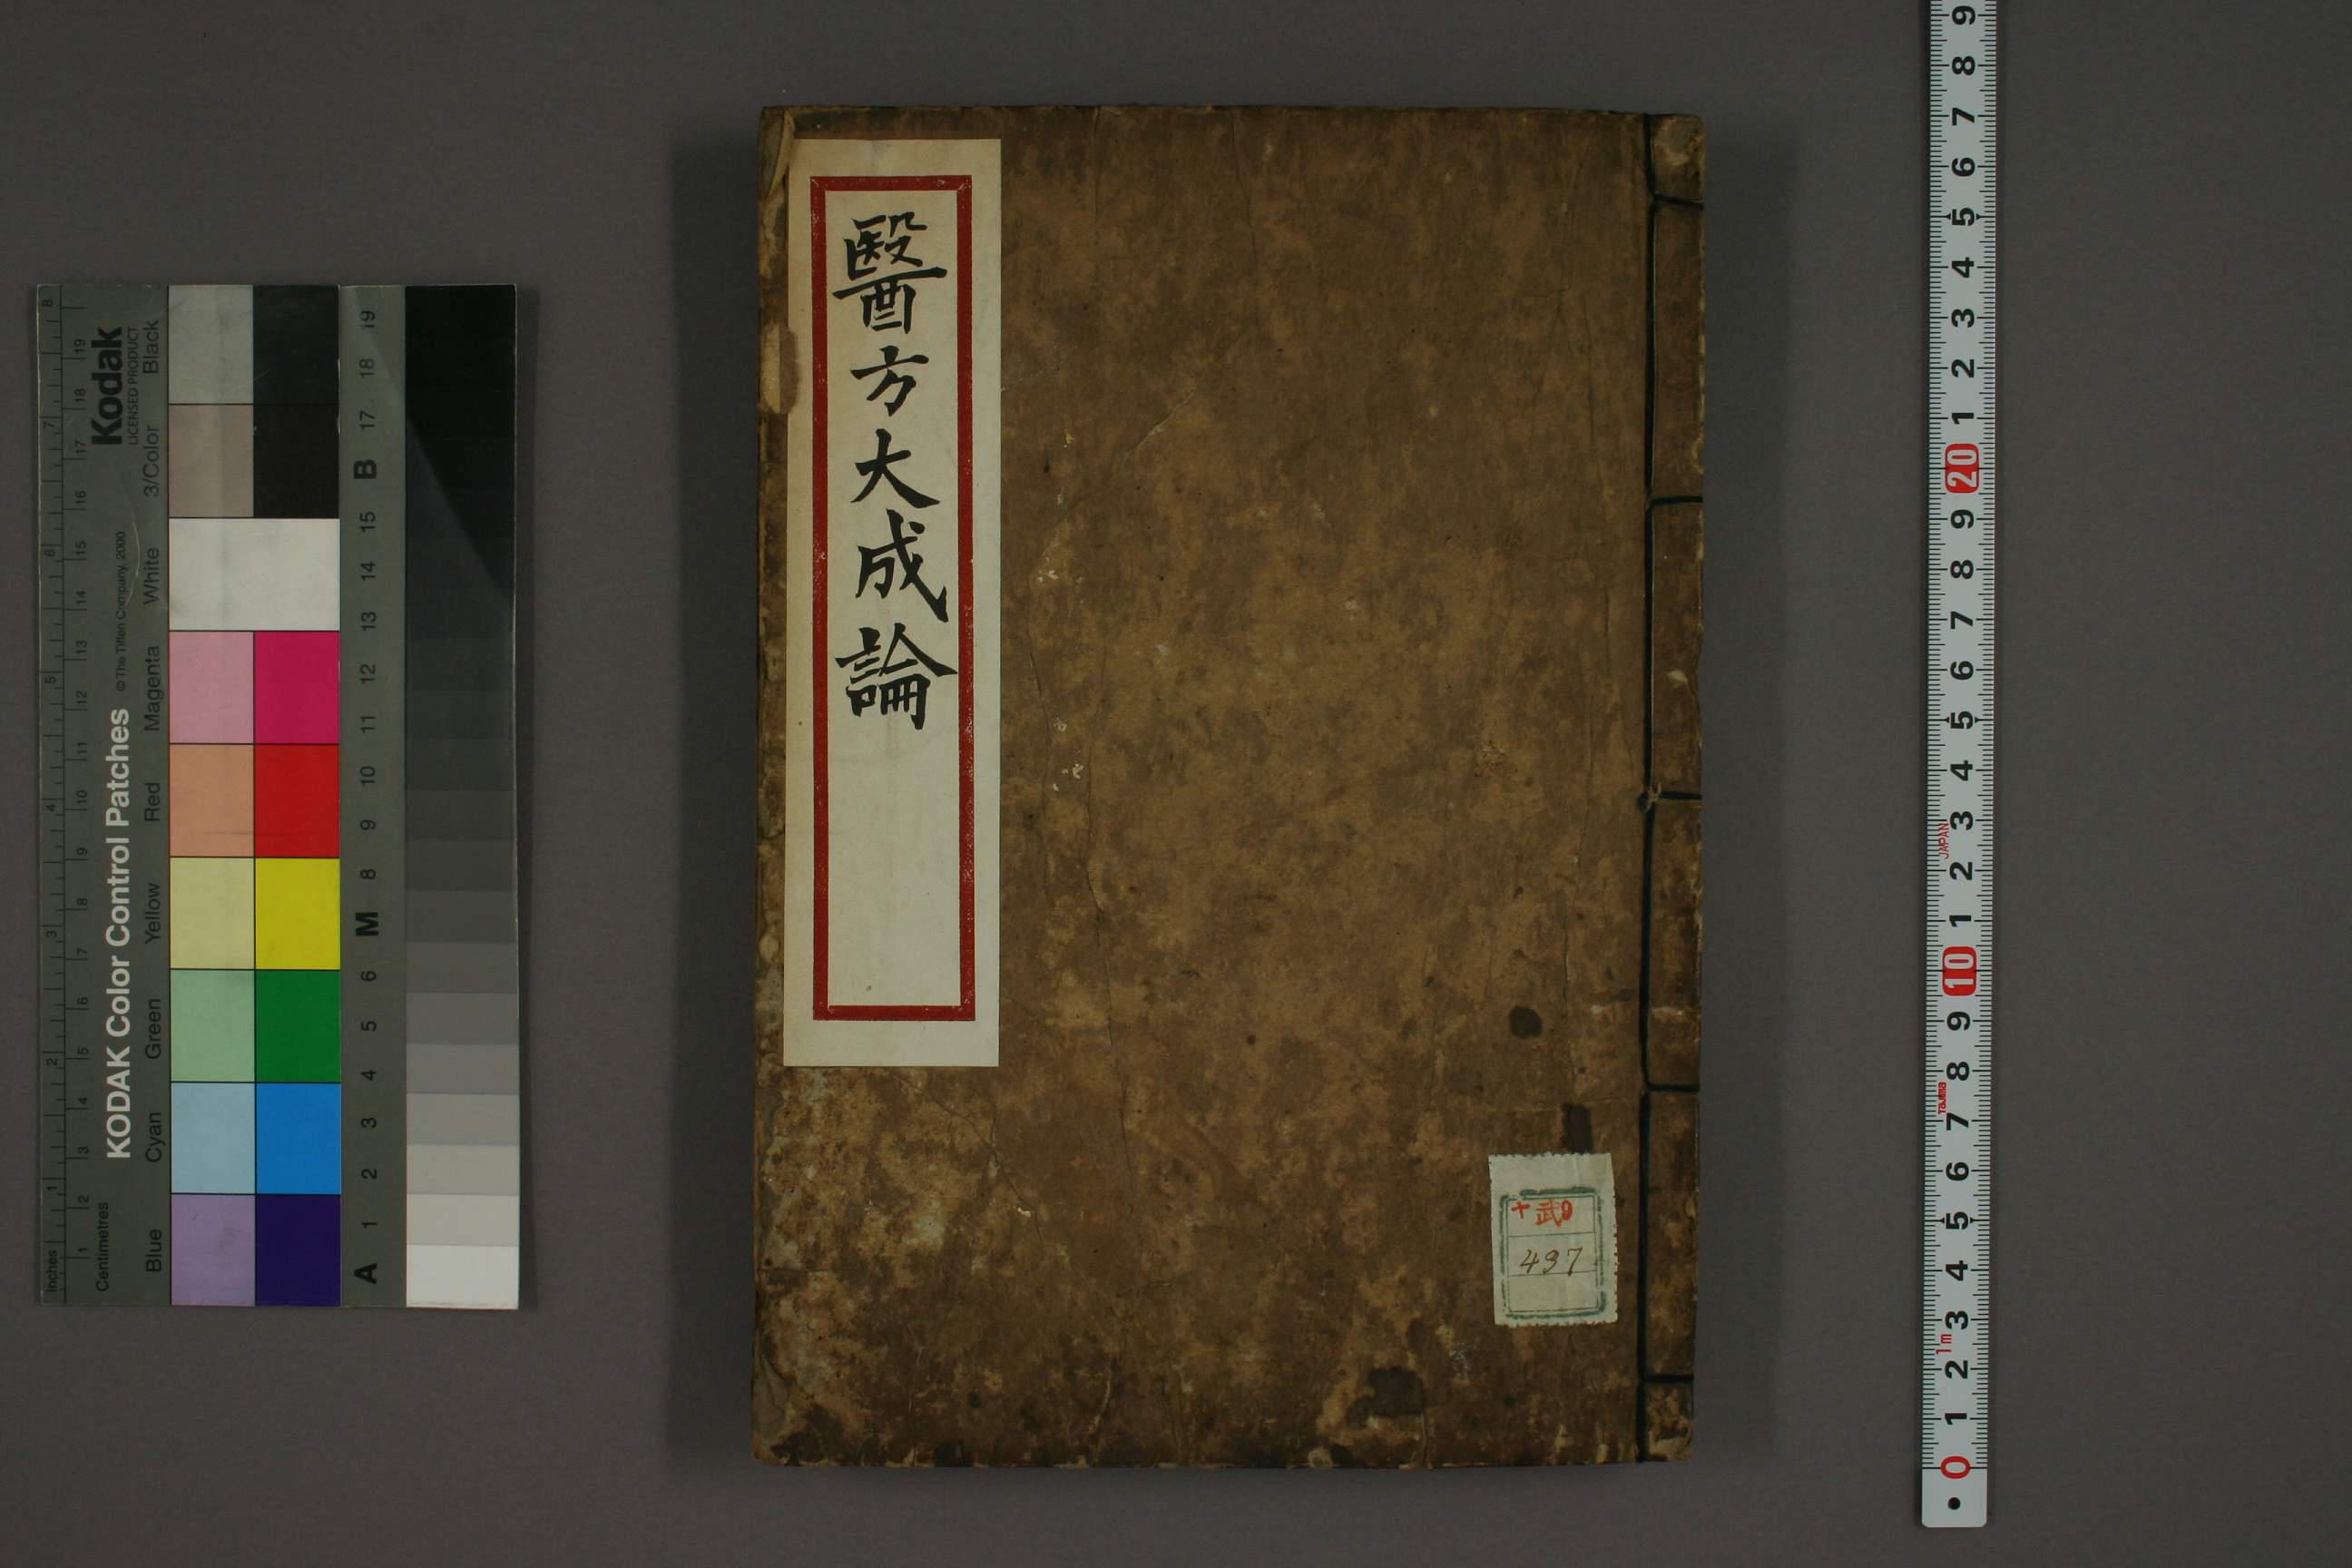 醫方大成論
十武9
437
Kodak
LICENSED PRODUCT
KODAK Color Control Patches
© The Tiffen Company, 2000
Blue Cyan Green Yellow Red Magenta White 3/Color Black
Inches 1 2 3 4 5 6 7 8
Centimetres 1 2 3 4 5 6 7 8 9 10 11 12 13 14 15 16 17 18 19
A 1 2 3 4 5 6 M 8 9 10 11 12 13 14 15 B 17 18 19
0 1 2 3 4 5 6 7 8 9 10 1 2 3 4 5 6 7 8 9 20 1 2 3 4 5 6 7 8 9
1m
Tajima
JAPAN